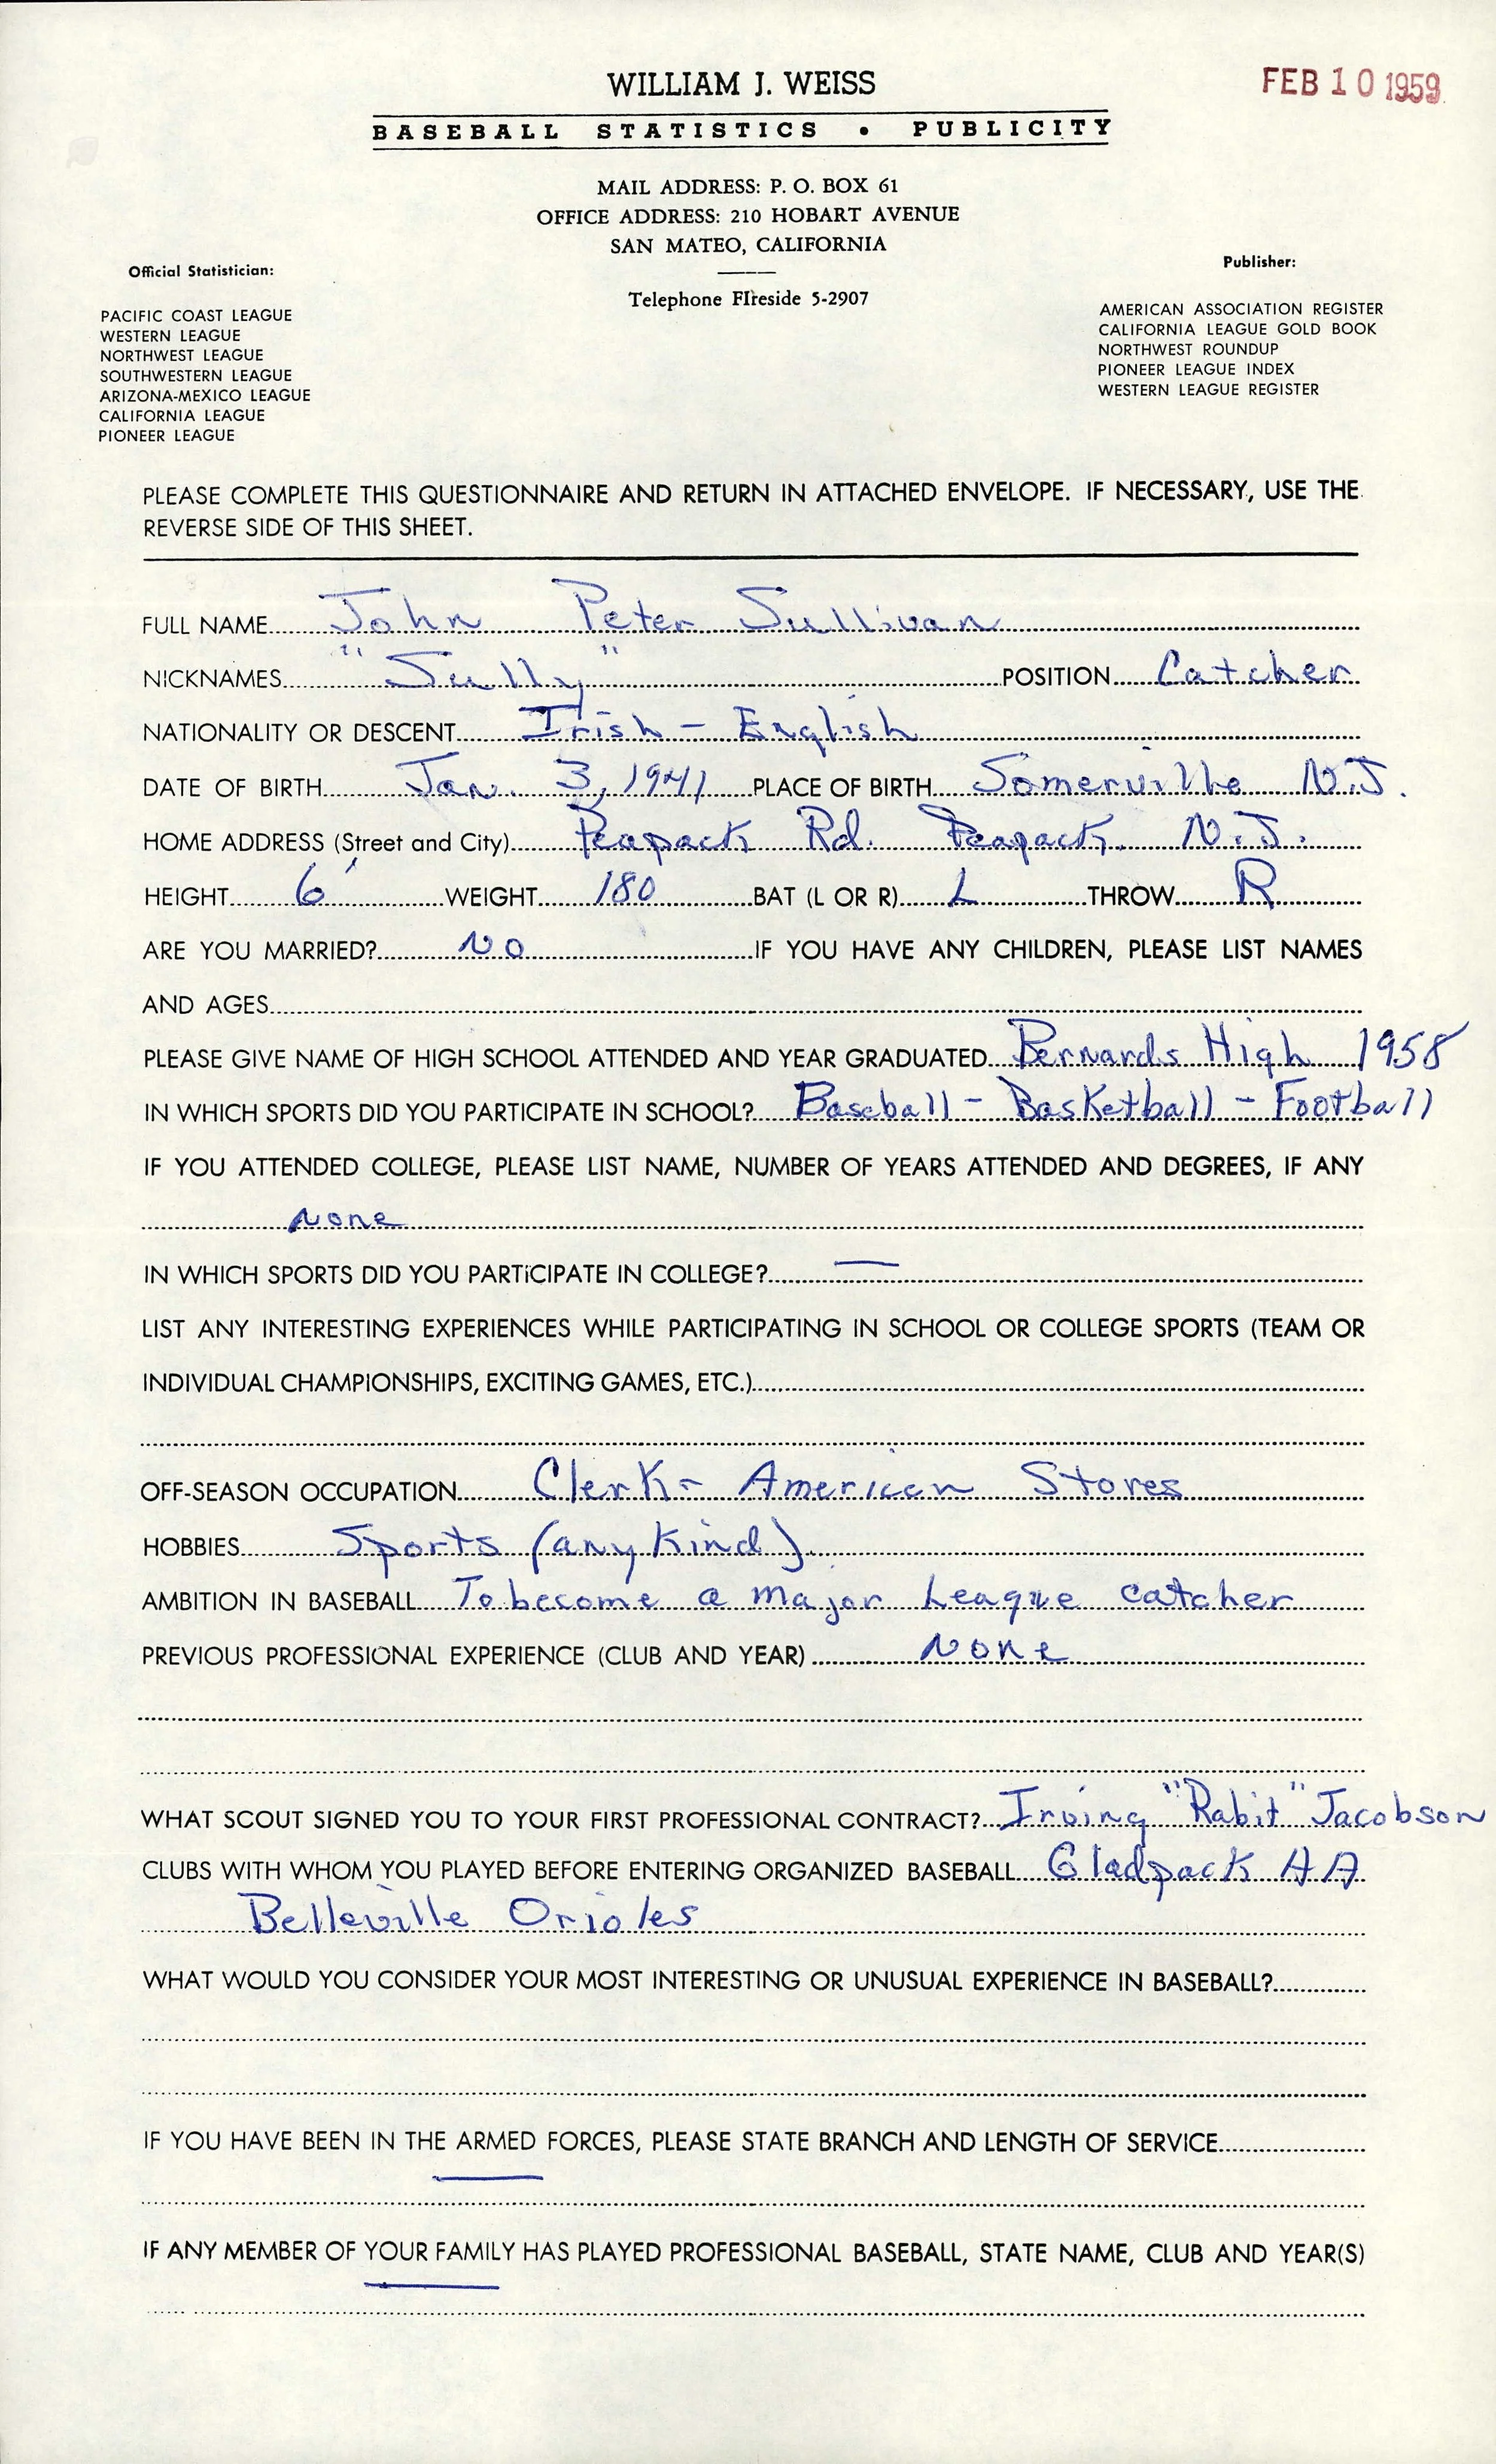 WILLIAM J. WEISS
FEB 10 1959
BASEBALL STATISTICS • PUBLICITY
MAIL ADDRESS: P. O. BOX 61
OFFICE ADDRESS: 210 HOBART AVENUE
SAN MATEO, CALIFORNIA
Telephone FIreside 5-2907
Official Statistician:
PACIFIC COAST LEAGUE
WESTERN LEAGUE
NORTHWEST LEAGUE
SOUTHWESTERN LEAGUE
ARIZONA-MEXICO LEAGUE
CALIFORNIA LEAGUE
PIONEER LEAGUE
Publisher:
AMERICAN ASSOCIATION REGISTER
CALIFORNIA LEAGUE GOLD BOOK
NORTHWEST ROUNDUP
PIONEER LEAGUE INDEX
WESTERN LEAGUE REGISTER
PLEASE COMPLETE THIS QUESTIONNAIRE AND RETURN IN ATTACHED ENVELOPE. IF NECESSARY, USE THE
REVERSE SIDE OF THIS SHEET.
FULL NAME John Peter Sullivan
NICKNAMES "Sully" POSITION Catcher
NATIONALITY OR DESCENT Irish - English
DATE OF BIRTH Jan. 3, 1941 PLACE OF BIRTH Somerville N.J.
HOME ADDRESS (Street and City) Peapack Rd. Peapack, N.J.
HEIGHT 6' WEIGHT 180 BAT (L OR R) L THROW R
ARE YOU MARRIED? NO IF YOU HAVE ANY CHILDREN, PLEASE LIST NAMES
AND AGES
PLEASE GIVE NAME OF HIGH SCHOOL ATTENDED AND YEAR GRADUATED Bernards High 1958
IN WHICH SPORTS DID YOU PARTICIPATE IN SCHOOL? Baseball - Basketball - Football
IF YOU ATTENDED COLLEGE, PLEASE LIST NAME, NUMBER OF YEARS ATTENDED AND DEGREES, IF ANY
None
IN WHICH SPORTS DID YOU PARTICIPATE IN COLLEGE? —
LIST ANY INTERESTING EXPERIENCES WHILE PARTICIPATING IN SCHOOL OR COLLEGE SPORTS (TEAM OR
INDIVIDUAL CHAMPIONSHIPS, EXCITING GAMES, ETC.)
OFF-SEASON OCCUPATION Clerk - American Stores
HOBBIES Sports (any kind)
AMBITION IN BASEBALL To become a major League catcher
PREVIOUS PROFESSIONAL EXPERIENCE (CLUB AND YEAR) None
WHAT SCOUT SIGNED YOU TO YOUR FIRST PROFESSIONAL CONTRACT? Irving "Rabit" Jacobson
CLUBS WITH WHOM YOU PLAYED BEFORE ENTERING ORGANIZED BASEBALL Gladpack AA
Belleville Orioles
WHAT WOULD YOU CONSIDER YOUR MOST INTERESTING OR UNUSUAL EXPERIENCE IN BASEBALL?
IF YOU HAVE BEEN IN THE ARMED FORCES, PLEASE STATE BRANCH AND LENGTH OF SERVICE
—
IF ANY MEMBER OF YOUR FAMILY HAS PLAYED PROFESSIONAL BASEBALL, STATE NAME, CLUB AND YEAR(S)
—